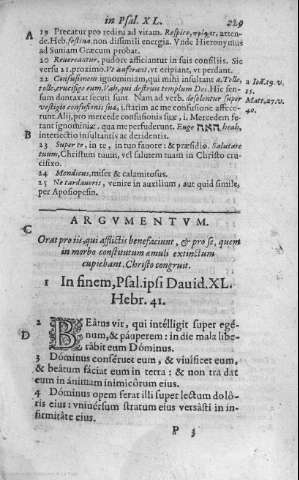 in Psal. XL. 229
A
19 Precatur pro reditu ad vitam. Respice, atten-
de. Heb. festina. non dissimili energia. Vnde Hieronymus
ad Suniam Græcum probat.
20 Reuereantur, pudore afficiantur in suis consiliis. Sic
versu 21. proximo. Vt auferant. vt eripiant, vt perdant.
22 Confusionem ignominiam, qui mihi insultant a. Tolle,
tolle, crucifige eum. Vah, qui destruis templum Dei. Hic sen-
sum dontaxat secuti sunt. Nam ad verb. desolentur super
vestigio confusionis suæ, i. statim ac me confusione affece-
runt. Alij, pro mercede confusionis suæ, i. Mercedem fe-
rant ignominiæ, qua me perfuderunt. Euge האח heah,
interiectio insultantis ac deridentis.
a Ioã. 19. v.
15.
Matt. 27. v.
40.
B
23 Super te, in te, in tuo fauore: & præsidio. Salutare
tuum, Christum tuum, vel salutem tuam in Christo cru-
cifixo.
24 Mendicus, miser & calamitosus.
25 Ne tardaueris, venire in auxilium, aut quid simile,
per Aposiopesin.
C
ARGVMENTVM.
Orat pro iis, qui afflictis benefaciunt, & pro se, quem
in morbo constitutum æmuli extinctum
cupiebant. Christo congruit.
1 In finem, Psal. ipsi Dauid. XL.
Hebr. 41.
D
2 BEátus vir, qui intélligit super egé-
num, & páuperem: in die mala libe-
rábit eum Dóminus.
3 Dóminus consêruet eum, & viuíficet eum,
& beátum fáciat eum in terra: & non tradat
eum in ánimam inimicórum eius.
4 Dóminus opem ferat illi super lectum doló-
ris eius: vniuérsum stratum eius versásti in in-
firmitáte eius.
P 3